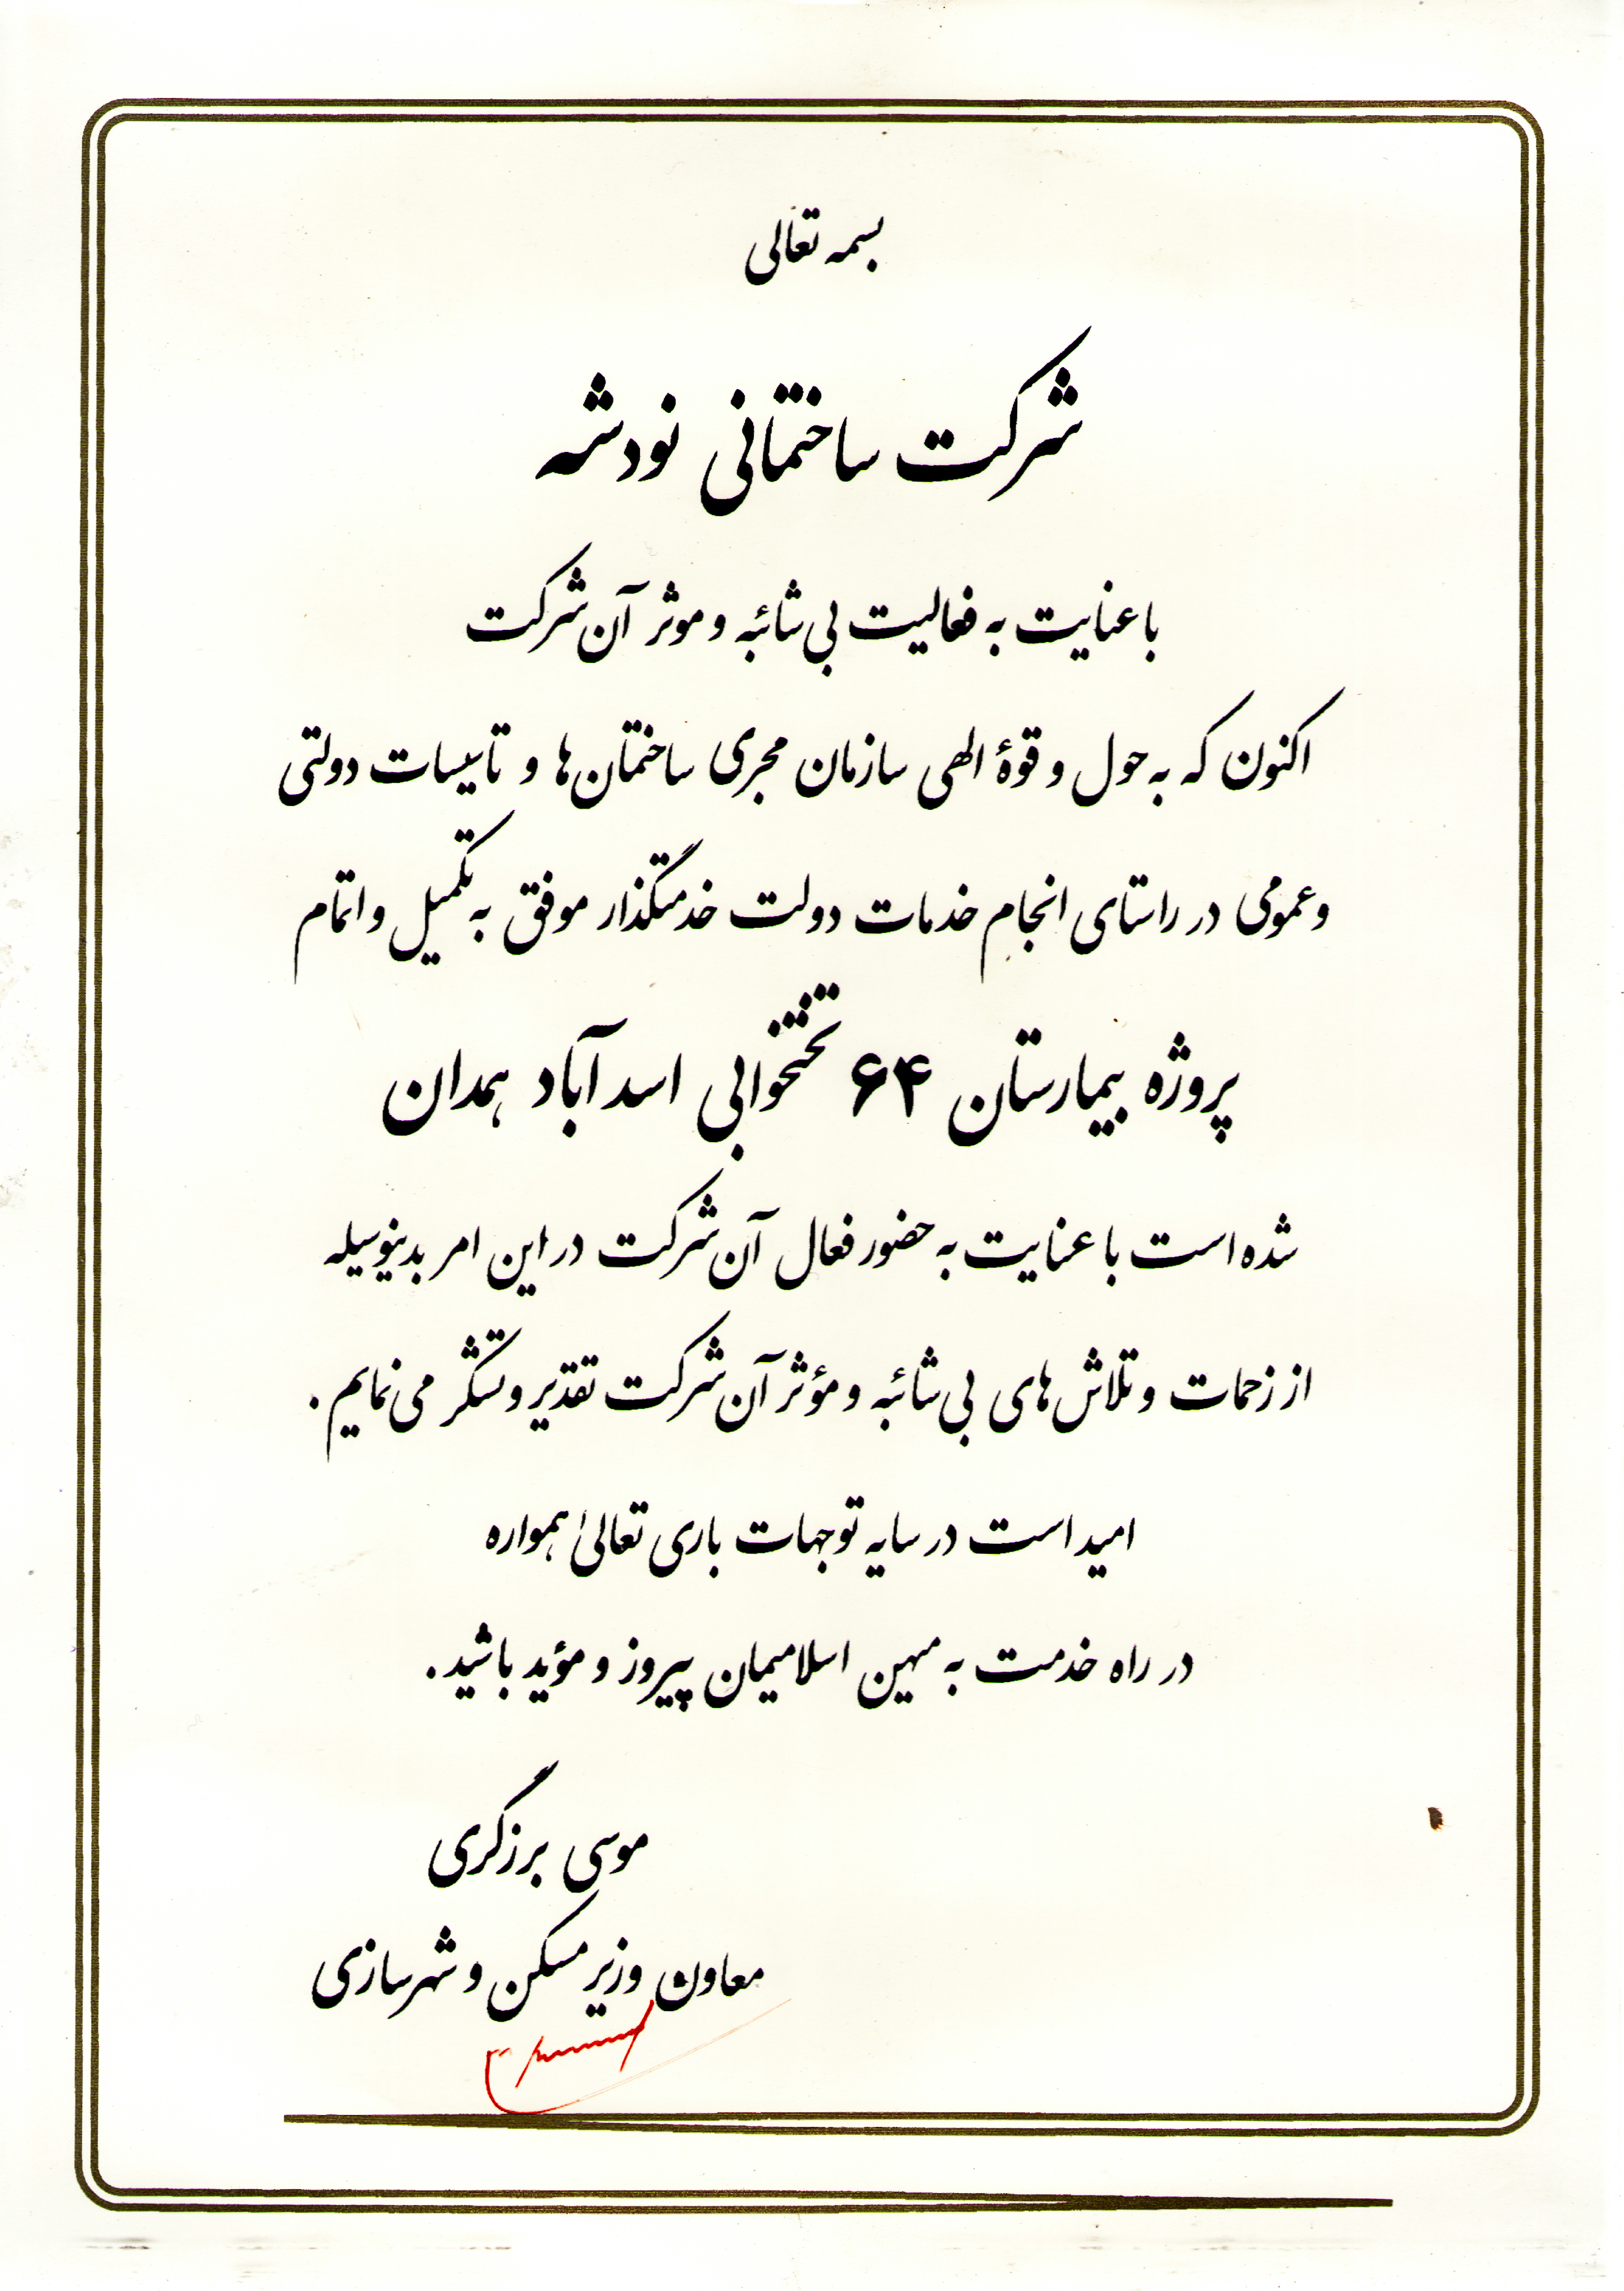 بسمه تعالی
شرکت ساختمانی نودشه
با عنایت به فعالیت بی شائبه و موثر آن شرکت
اکنون که به حول و قوهٔ الهی سازمان مجری ساختمان ها و تاسیسات دولتی
و عمومی در راستای انجام خدمات دولت خدمتگذار موفق به تکمیل و اتمام
پروژه بیمارستان ۶۴ تختخوابی اسد آباد همدان
شده است با عنایت به حضور فعال آن شرکت در این امر بدینوسیله
از زحمات و تلاش های بی شائبه و مؤثر آن شرکت تقدیر و تشکر می نمایم .
امید است در سایه توجهات باری تعالیٰ همواره
در راه خدمت به میهن اسلامیمان پیروز و مؤید باشید .
موسی برزگری
معاون وزیر مسکن و شهرسازی